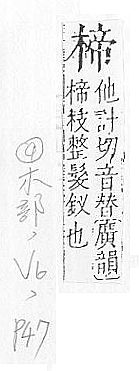 楴
他計切音替廣韻
楴枝整髮釵也
④木部、V6、P47